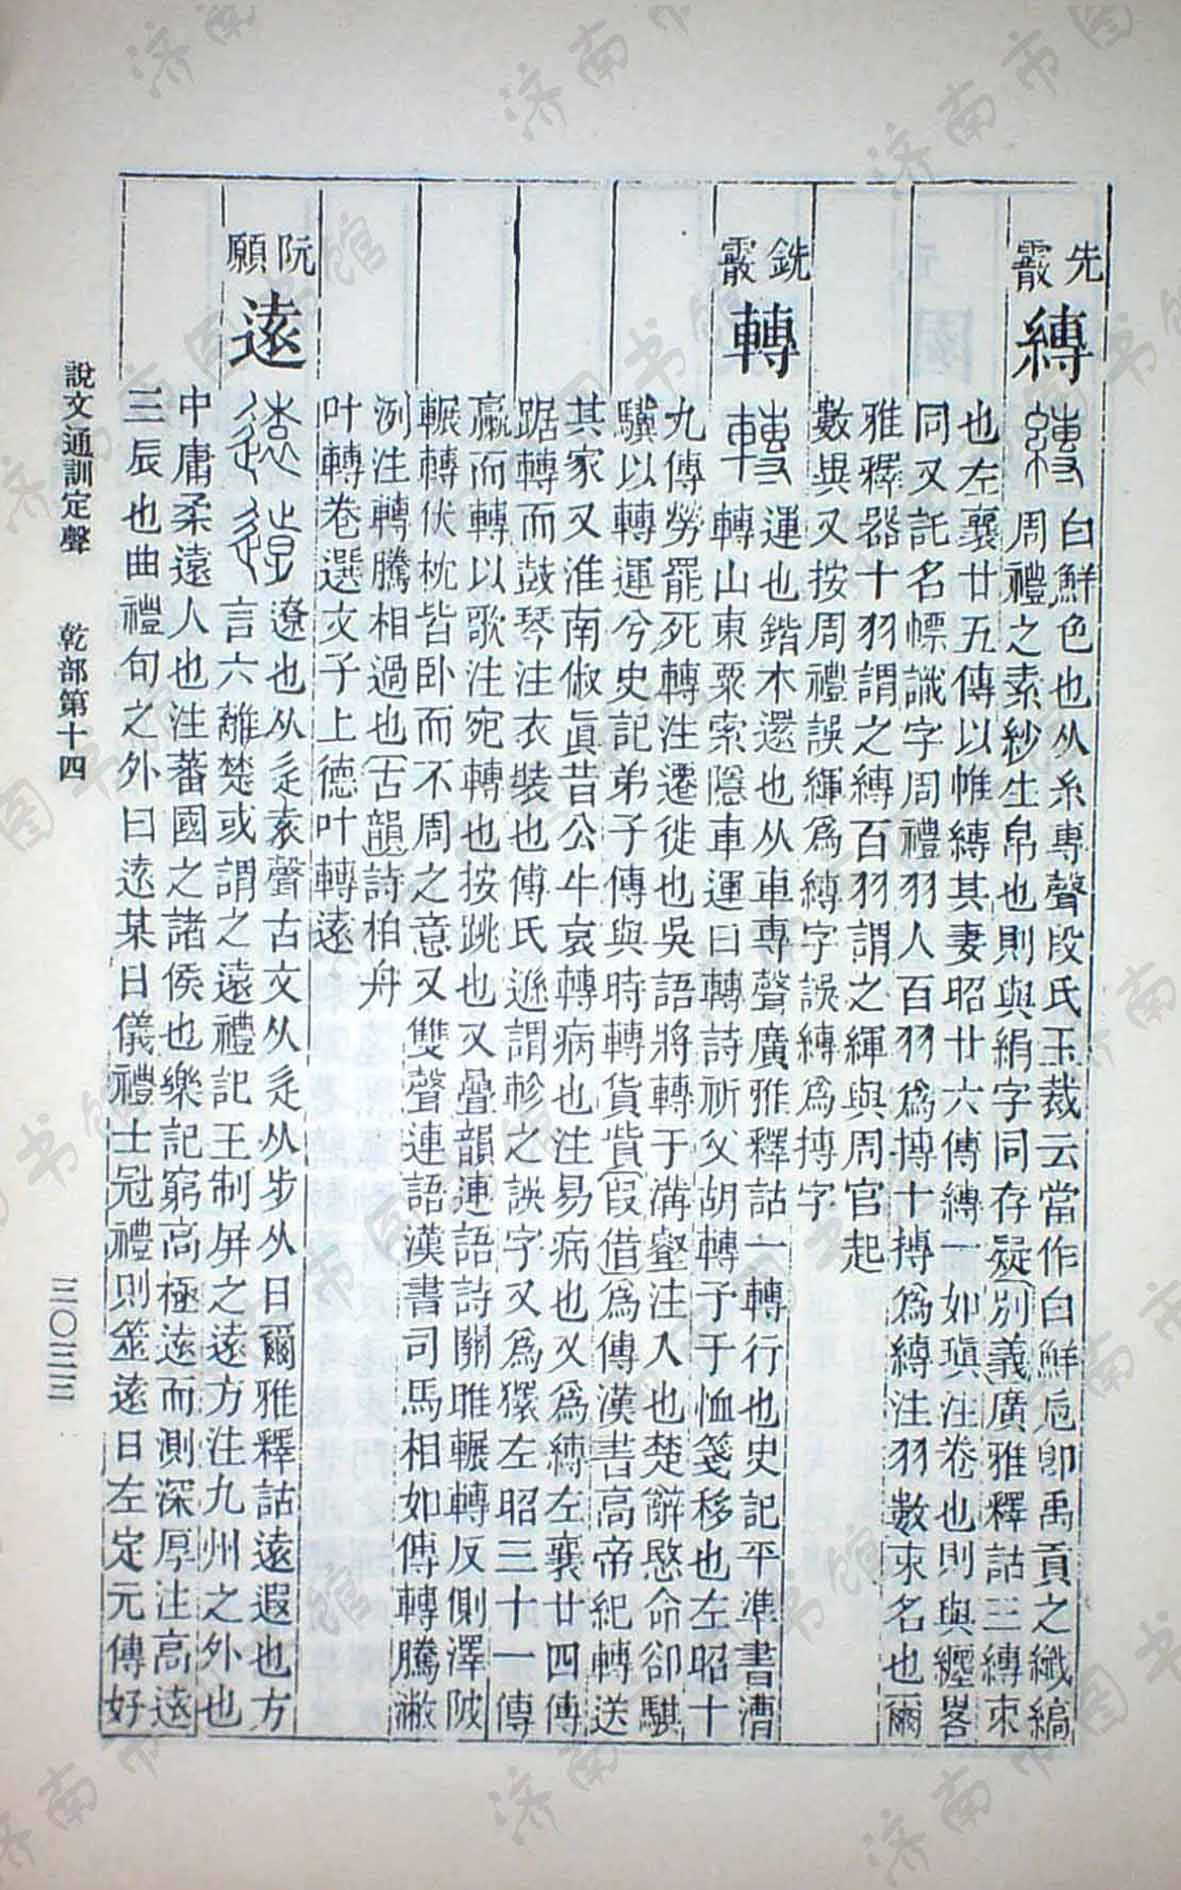 先霰
縳
白鮮色也从糸專聲段氏玉裁云當作白鮮卮卽禹貢之纖縞
周禮之素紗生帛也則與絹字同存疑別義廣雅釋詁三縳束
也左襄廿五傳以帷縳其妻昭廿六傳縳一如瑱注卷也則與纏畧
同又託名幖識字周禮羽人百羽爲摶十摶爲縳注羽數束名也爾
雅釋器十羽謂之縳百羽謂之緷與周官起
數異又按周禮誤緷爲縳字誤縳爲摶字
銑霰
轉
運也鍇本還也从車專聲廣雅釋詁一轉行也史記平準書漕
轉山東粟索隱車運曰轉詩祈父胡轉予于恤箋移也左昭十
九傳勞罷死轉注遷徙也吳語將轉于溝壑注入也楚辭愍命卻騏
驥以轉運兮史記弟子傳與時轉貨貲叚借爲傳漢書高帝紀轉送
其家又淮南俶眞昔公牛哀轉病也注易病也又爲縳左襄廿四傳
踞轉而鼓琴注衣裝也傅氏遜謂軫之誤字又爲獧左昭三十一傳
臝而轉以歌注宛轉也按跳也又疊韻連語詩關雎輾轉反側澤陂
輾轉伏枕皆卧而不周之意又雙聲連語漢書司馬相如傳轉騰潎
洌注轉騰相過也古韻詩柏舟
叶轉卷選文子上德叶轉遠
阮願
遠
遼也从辵袁聲古文从辵从步从日爾雅釋詁遠遐也方
言六離楚或謂之遠禮記王制屏之遠方注九州之外也
中庸柔遠人也注蕃國之諸侯也樂記窮高極遠而測深厚注高遠
三辰也曲禮旬之外曰遠某日儀禮士冠禮則筮遠日左定元傳好
說文通訓定聲 乾部第十四 三〇三三